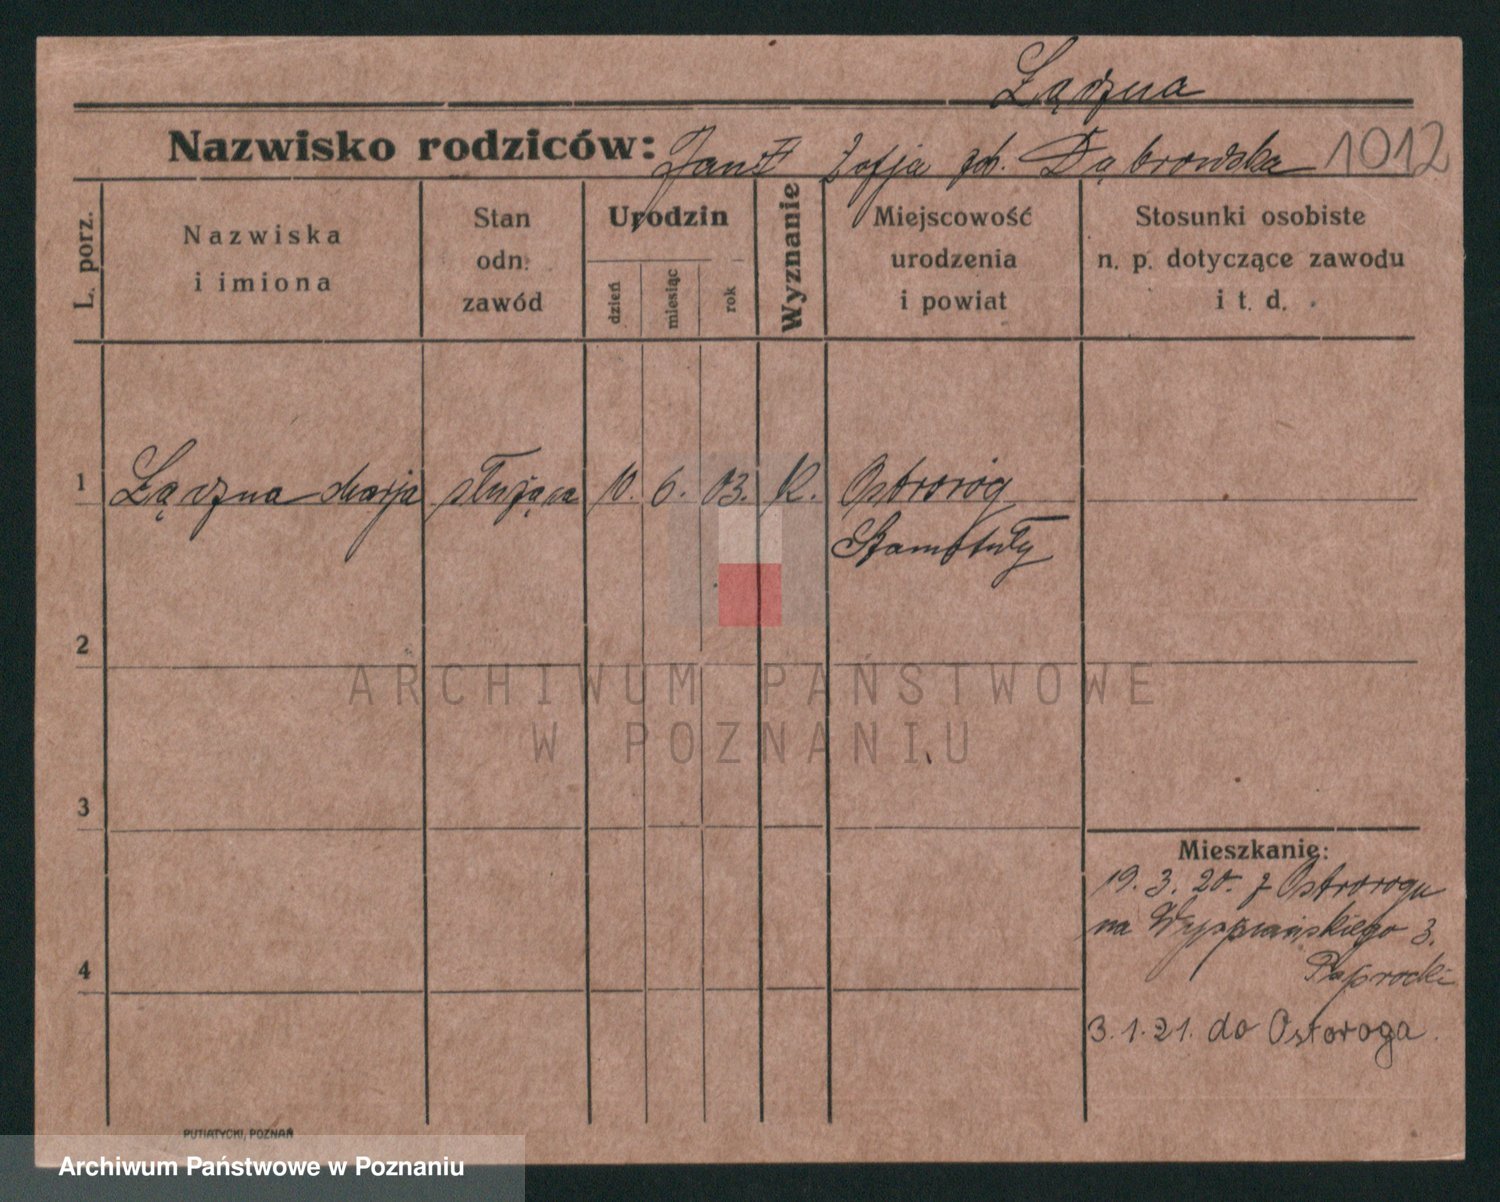 Łączna
Nazwisko rodziców: Jan i Zofja zd. Dąbrowska 1012
L. porz.
Nazwiska
i imiona
Stan
odn.
zawód
Urodzin
dzień
miesiąc
rok
Wyznanie
Miejscowość
urodzenia
i powiat
Stosunki osobiste
n. p. dotyczące zawodu
i t. d.
1 Łączna Marja służąca 10. 6. 03. K. Ostroróg
Szamotuły
2
ARCHIWUM PAŃSTWOWE
W POZNANIU
3
Mieszkanie:
19. 3. 20. z Ostroroga
na Wyspiańskiego 3.
Paprocki
4
3. 1. 21. do Ostoroga.
PUTIATYCKI, POZNAŃ
Archiwum Państwowe w Poznaniu